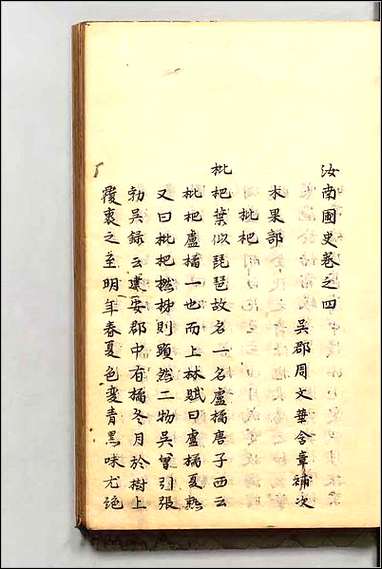 汝南圃史卷之四
吳郡周文華含章補次
木果部
枇杷
枇杷葉似琵琶故名一名盧橘唐子西云
枇杷盧橘一也而上林賦曰盧橘夏熟
又曰枇杷橪柿則顯然二物吳曾引張
勃吳錄云建安郡中有橘冬月於樹上
覆裹之至明年春夏色變青黑味尤絕